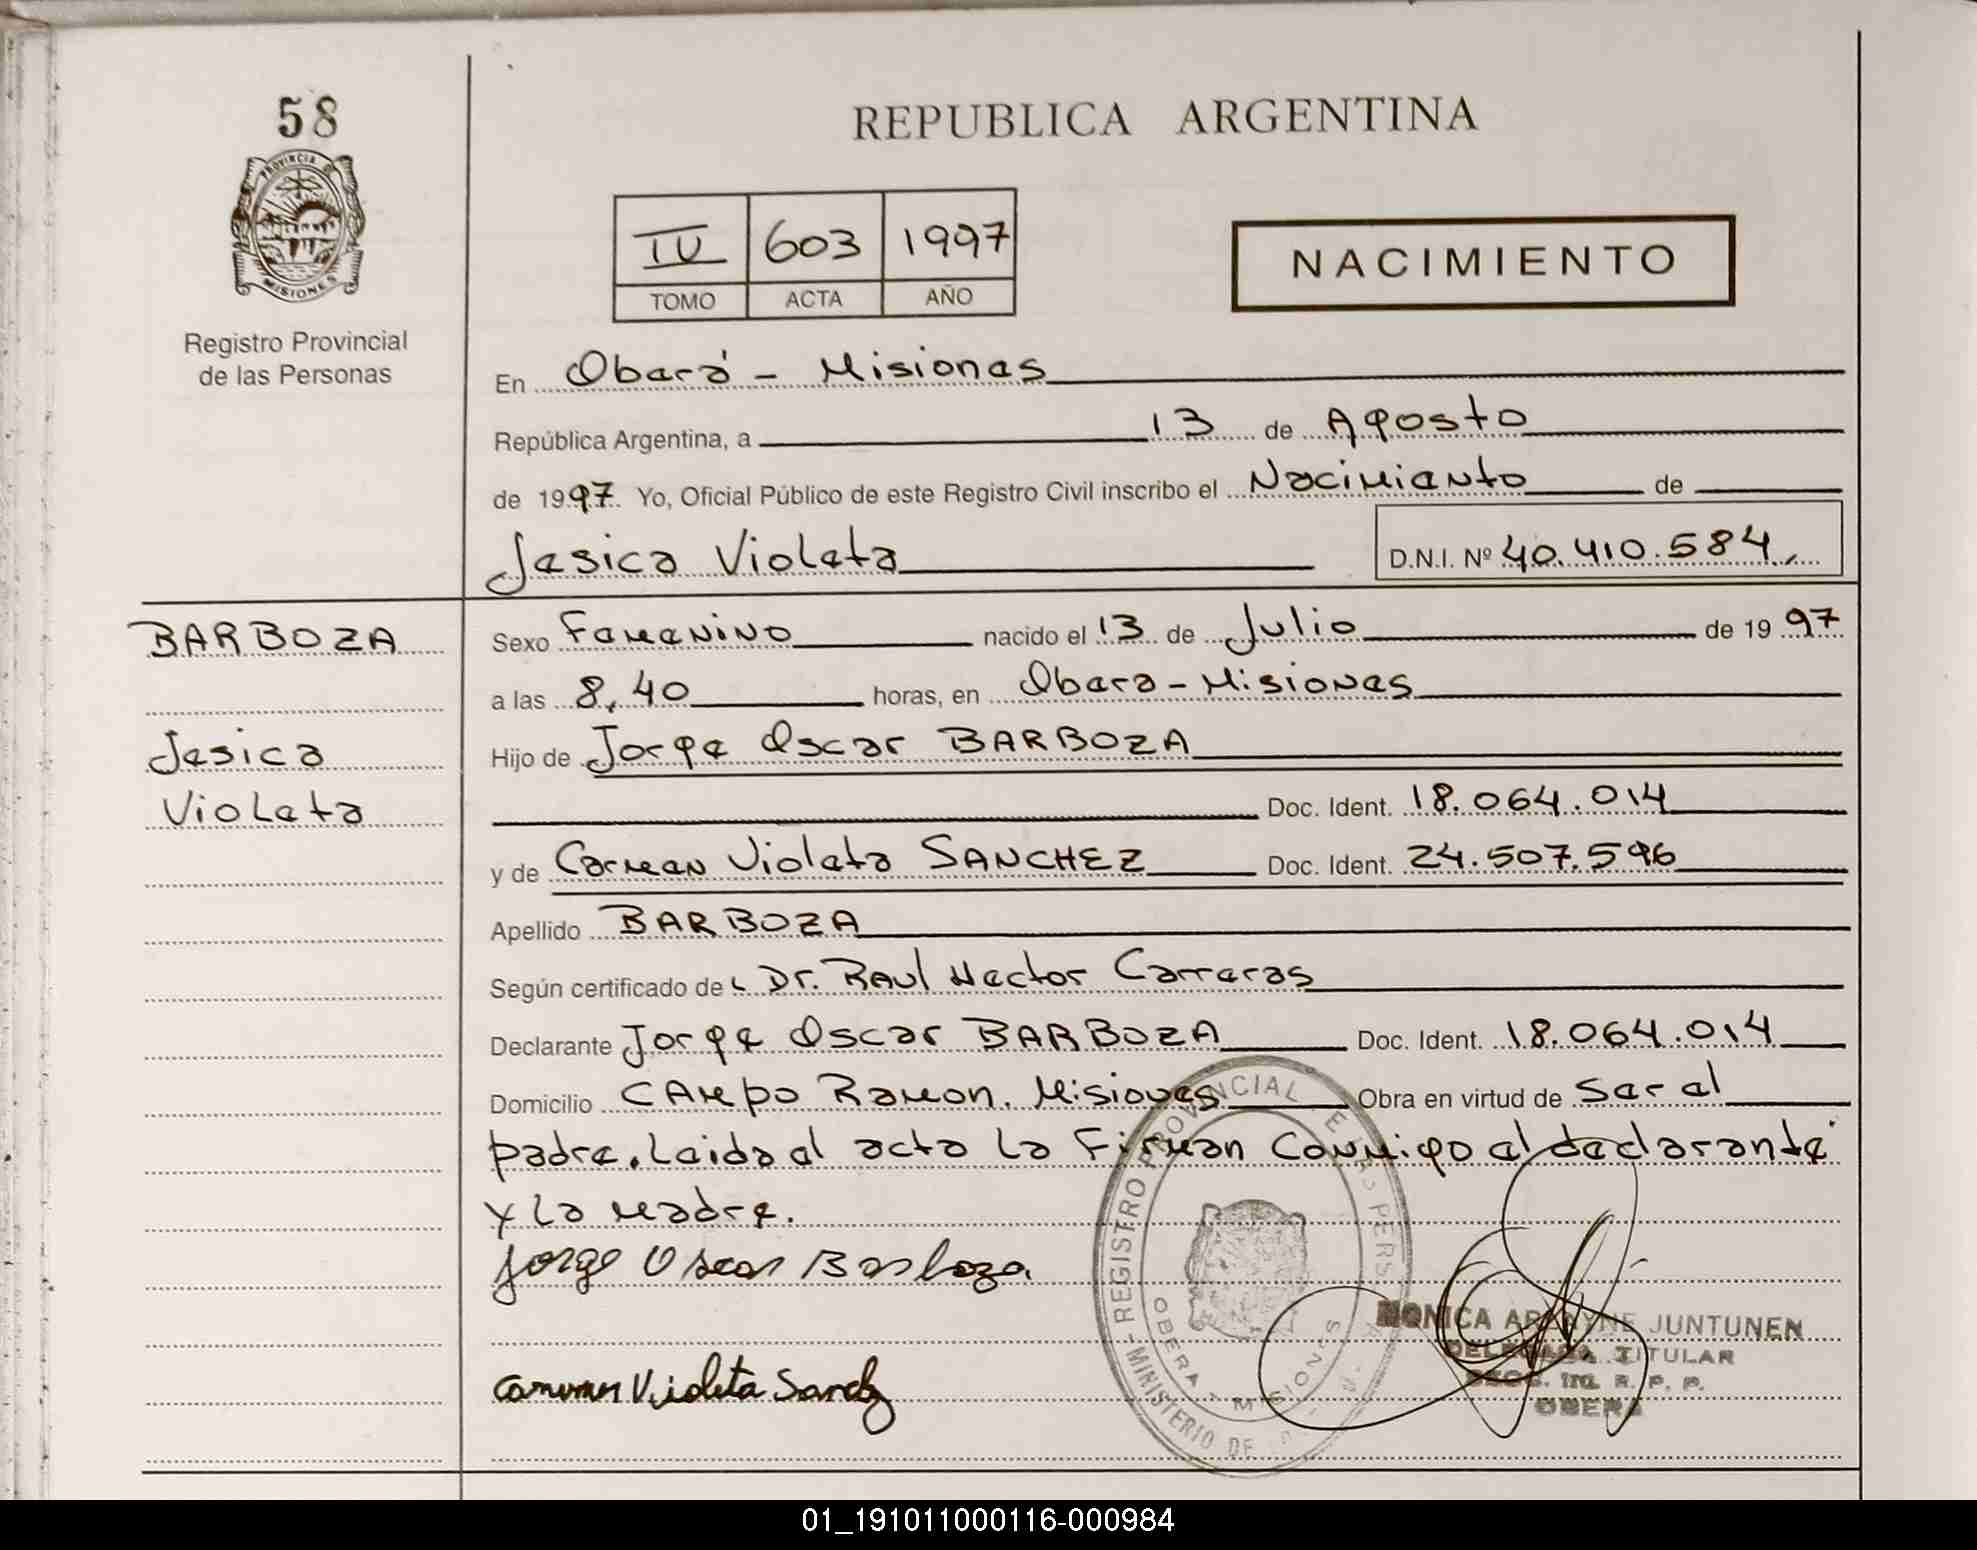 58
PROVINCIA DE
MISIONES
Registro Provincial
de las Personas
REPUBLICA ARGENTINA
IV 603 1997
TOMO ACTA AÑO
NACIMIENTO
En Oberá - Misiones
República Argentina, a 13 de Agosto
de 1997. Yo, Oficial Público de este Registro Civil inscribo el Nacimiento de
Jesica Violeta D.N.I. Nº 40.410.584
BARBOZA
Jesica
Violeta
Sexo Femenino nacido el 13 de Julio de 1997
a las 8,40 horas, en Obera - Misiones
Hijo de Jorge Oscar BARBOZA
Doc. Ident. 18.064.014
y de Carmen Violeta SANCHEZ Doc. Ident. 24.507.596
Apellido BARBOZA
Según certificado de Dr. Raul Hector Carreras
Declarante Jorge Oscar BARBOZA Doc. Ident. 18.064.014
Domicilio Campo Ramon. Misiones Obra en virtud de Ser el
padre. Leida el acta la Firman Conmigo el declarante
y la madre.
Jorge Oscar Barboza
Carmen Violeta Sanchez
REGISTRO PROVINCIAL DE LAS PERS
MINISTERIO DE
OBERA - MISIONES
MONICA JUNTUNEN
DELEGADA TITULAR
SECC. 1ra. R. P. P.
OBERA
01_191011000116-000984